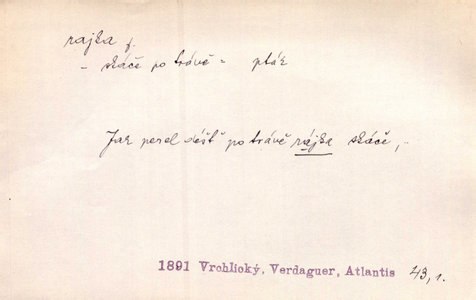 rajka f.
- skáče po trávě - pták
Jak perel déšť po trávě rájka skáče,..
1891 Vrchlický, Verdaguer, Atlantis 43, 1.